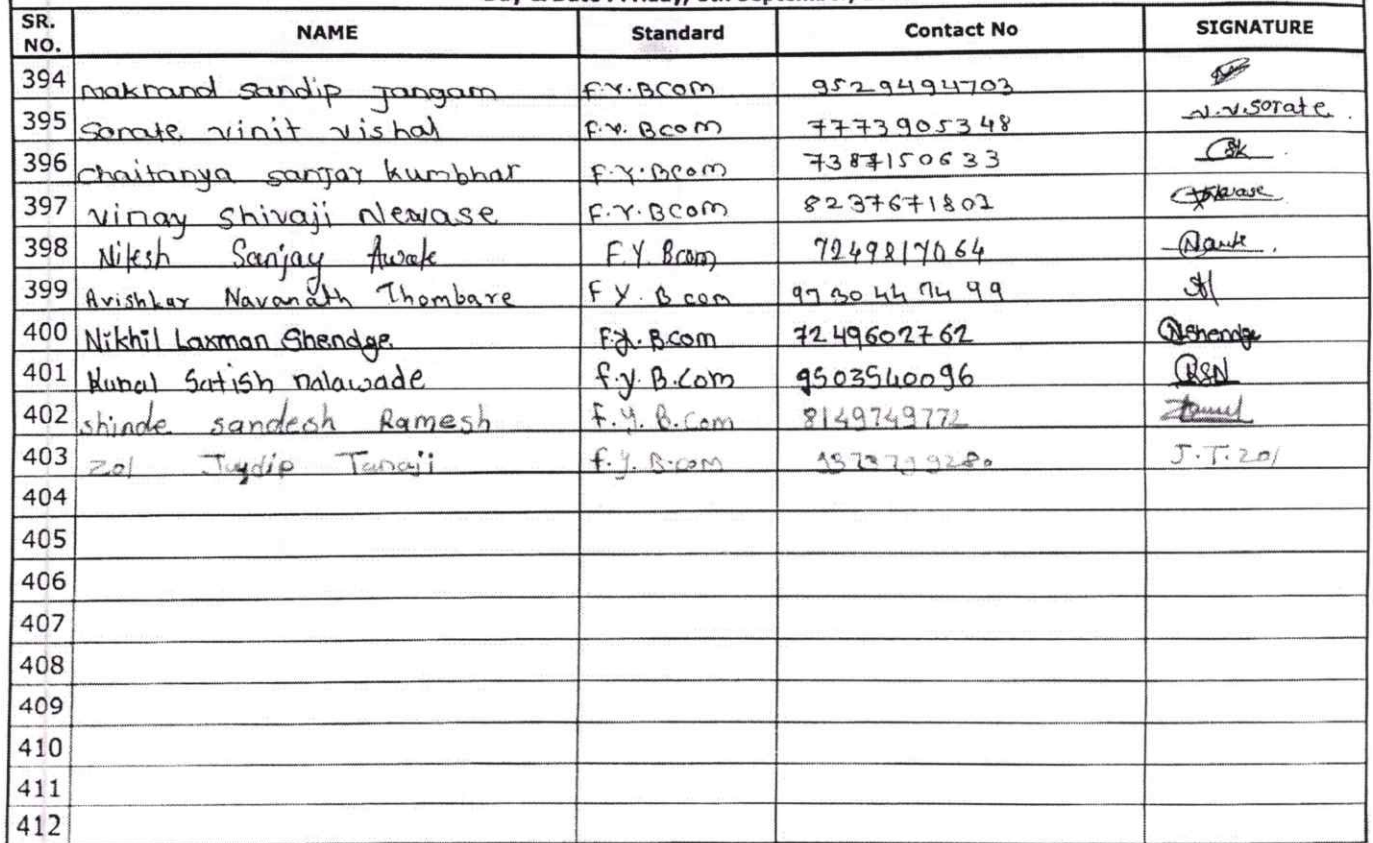 SR. NO. NAME Standard Contact No SIGNATURE
394 makrand sandip Jangam F.Y.BCOM 9529494703
395 Sorate vinit vishal F.Y. BCom 7773905348 v.v.sorate.
396 chaitanya sanjay kumbhar F.Y.BCom 7387150633
397 vinay shivaji Nevase F.Y.BCom
398 Nitesh Sanjay Awate F.Y. Bcom 7249817064
399 Avishkar Navanath Thombare F Y. B com 9730447499
400 Nikhil Laxman Shendge F.Y.B.com 7249602762 NShendge
401 Kunal Satish nalawade f.y.B.Com 9503540096
402 shinde sandesh Ramesh f.y.B.Com 8149749772
403 Zol Tanaji f.y.B.com J.T.Zol
404
405
406
407
408
409
410
411
412